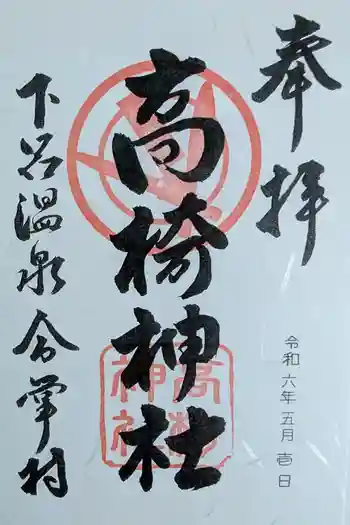 奉拝
令和六年五月壱日
高椅神社
高椅神社
下呂温泉合掌村